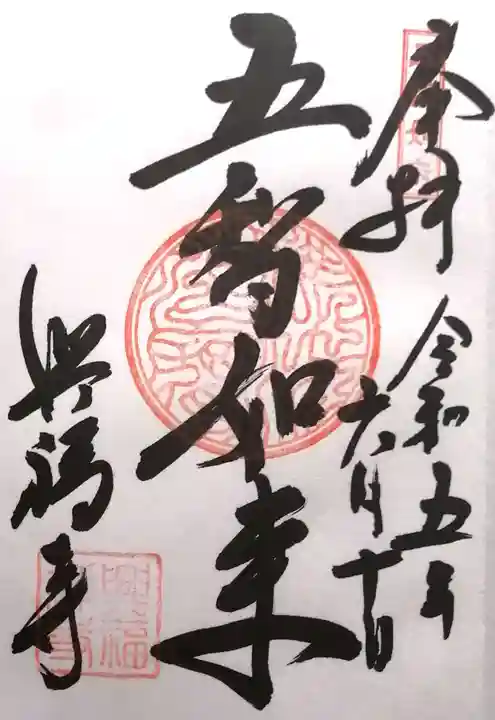 奉拝
令和五年
六月十日
五智如来
興福寺
興福寺